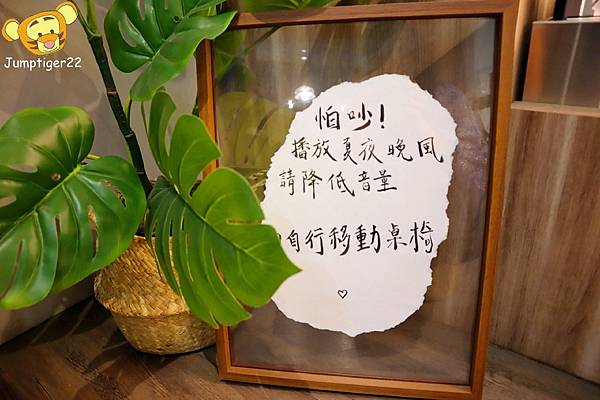 Jumptiger22
怕吵!
播放夏夜晚風
請降低音量
自行移動桌椅
♡